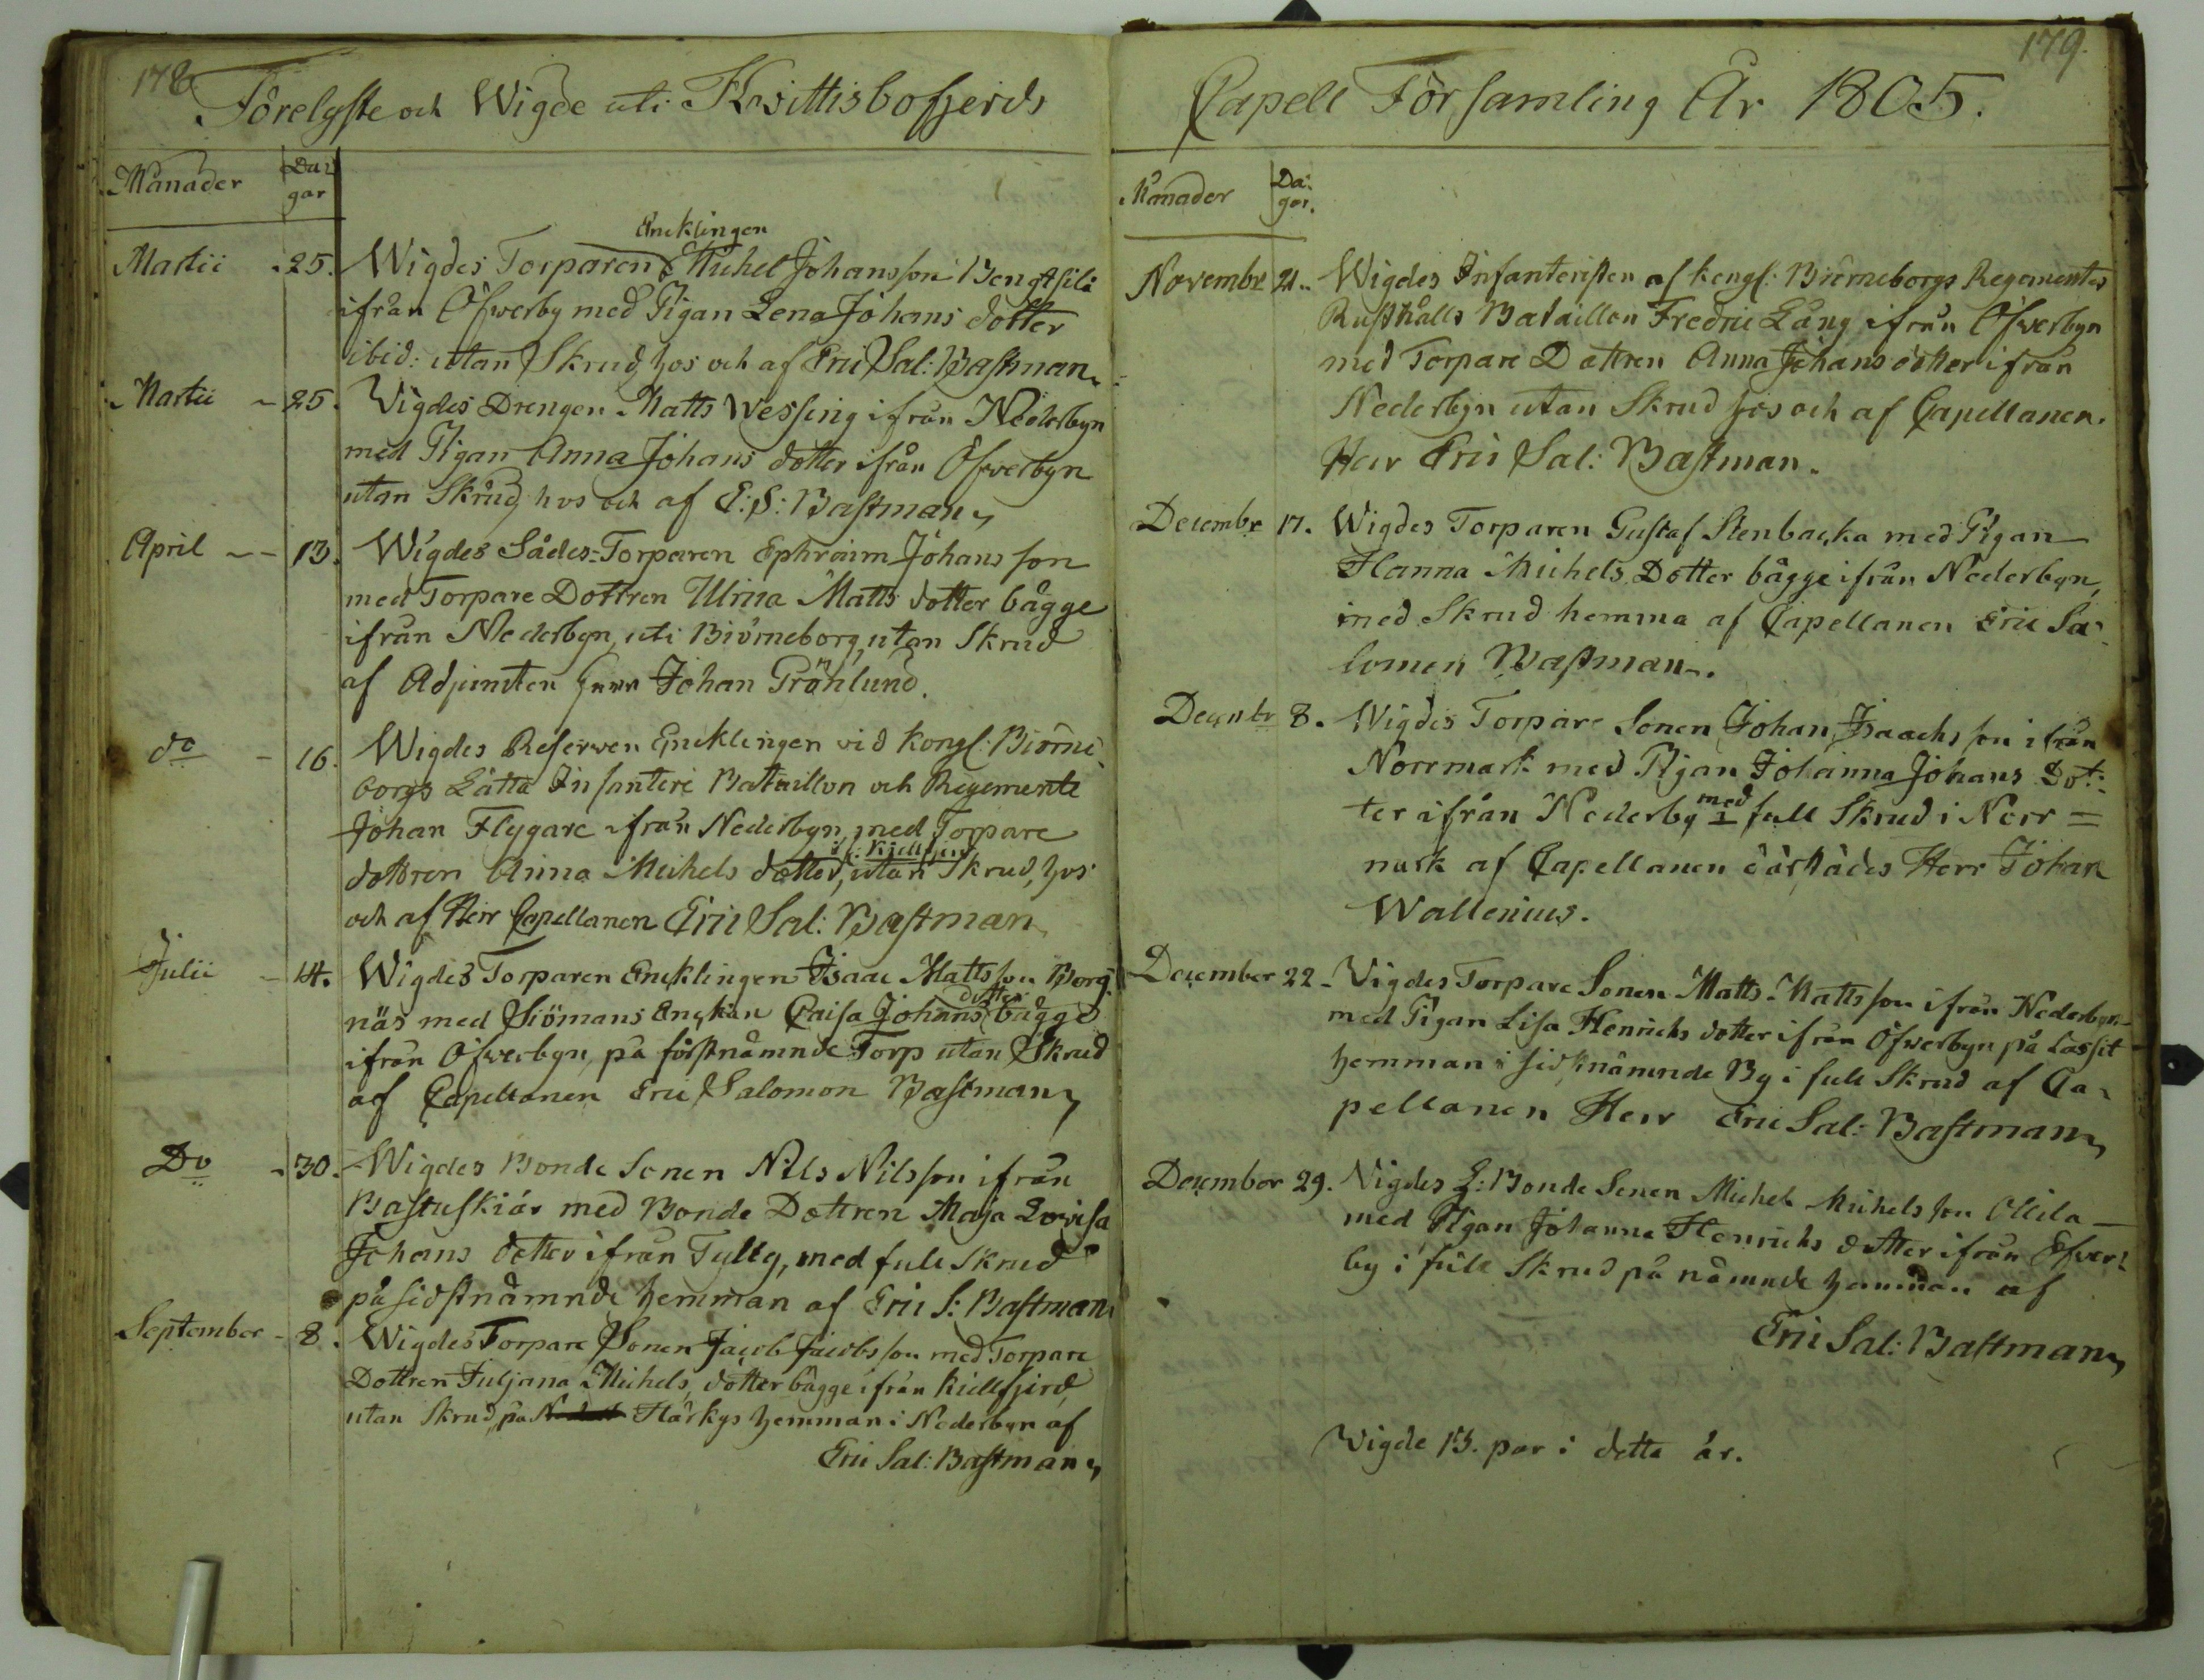 178
Förelyste och Wigde uti Kvittisbofjerds
Månader
Da:
gar
Enklingen
Martii 25. Wigdes Torparen Michel Johansson Bengtsili
ifrån Öfwerby med Pigan Lena Johans dotter
ibid: utan Skrud, hos och af Eric Sal: Bastman
Martii 25. Wigdes Drengen Matts Wessing ifrån Nederbyn
med Pigan Anna Johans dotter ifrån Öfwerbyn
utan Skrud, hos och af E: S: Bastman
April 13. Wigdes Sådes-Torparen Ephraim Johansson
med Torpare Dottren Ulrica Matts dotter bägge
ifrån Nederbyn, uti Biörneborg, utan Skrud
af Adjuncten Herr Johan Grönlund.
do 16. Wigdes Reserven Encklingen vid Kongl: Biörne
borgs Lätta Infanteri Bataillon och Regemente
Johan Flygare ifrån Nederbyn, med Torpare
if: Kiellfjerd
dottren Anna Michels dotter, utan Skrud, hos
och af Herr Capellanen Eric Sal: Bastman
Julii 14. Wigdes Torparen Encklingen Isaac Mattsson Borg
dotter
näs med Siömans Enckan Caisa Johans bägge
ifrån Öfwerbyn, på förstnämnde Torp utan Skrud
af Capellanen Eric Salomon Bastman
Do 30. Wigdes Bonde Sonen Nils Nilsson ifrån
Bastuskiär med Bonde Dottren Maja Lovisa
Johans dotter ifrån Tyltty, med full Skrud
på sidstnämnde hemman af Eric S: Bastman
September 8. Wigdes Torpare Sonen Jacob Jacobsson med Torpare
Dottren Juljana Michels dotter bägge ifrån Kiellfjerd
utan Skrud, på Harkys hemman i Nederbyn af
Eric Sal: Bastman
179.
Capell Församling År 1805.
Månader
Da:
gar.
Novembr 21. Wigdes Infanteristen af Kongl: Biörneborgs Regementes
Rusthålls Bataillon Fredric Lång ifrån Öfwerbyn
med Torpare Dottren Anna Johans dotter ifrån
Nederbyn utan Skrud hos och af Capellanen
Herr Eric Sal: Bastman.
Decembr 17. Wigdes Torparen Gustaf Stenbacka med Pigan
Hanna Michels Dotter bägge ifrån Nederbyn,
med Skrud hemma af Capellanen Eric Sa
lomon Bastman.
Decembr 8. Wigdes Torpare Sonen Johan Isaachsson ifrån
Norrmark med Pigan Johanna Johans Dot:
med
ter ifrån Nederby full Skrud i Norr=
mark af Capellanen därstädes Herr Johan
Wallenius.
December 22. Wigdes Torpare Sonen Matts Mattsson ifrån Nederbyn
med Pigan Lisa Henrichs dotter ifrån Öfwerbyn på Lassit
hemman i sidstnämnde By i full Skrud af Ca
pellanen Herr Eric Sal: Bastman
December 29. Wigdes L: Bonde Sonen Michel Michelsson Ollila
med Pigan Johanna Henrichs dotter ifrån Öfwer
by i full Skrud på nämnde hemman af
Eric Sal: Bastman
Wigde 13. par i detta år.